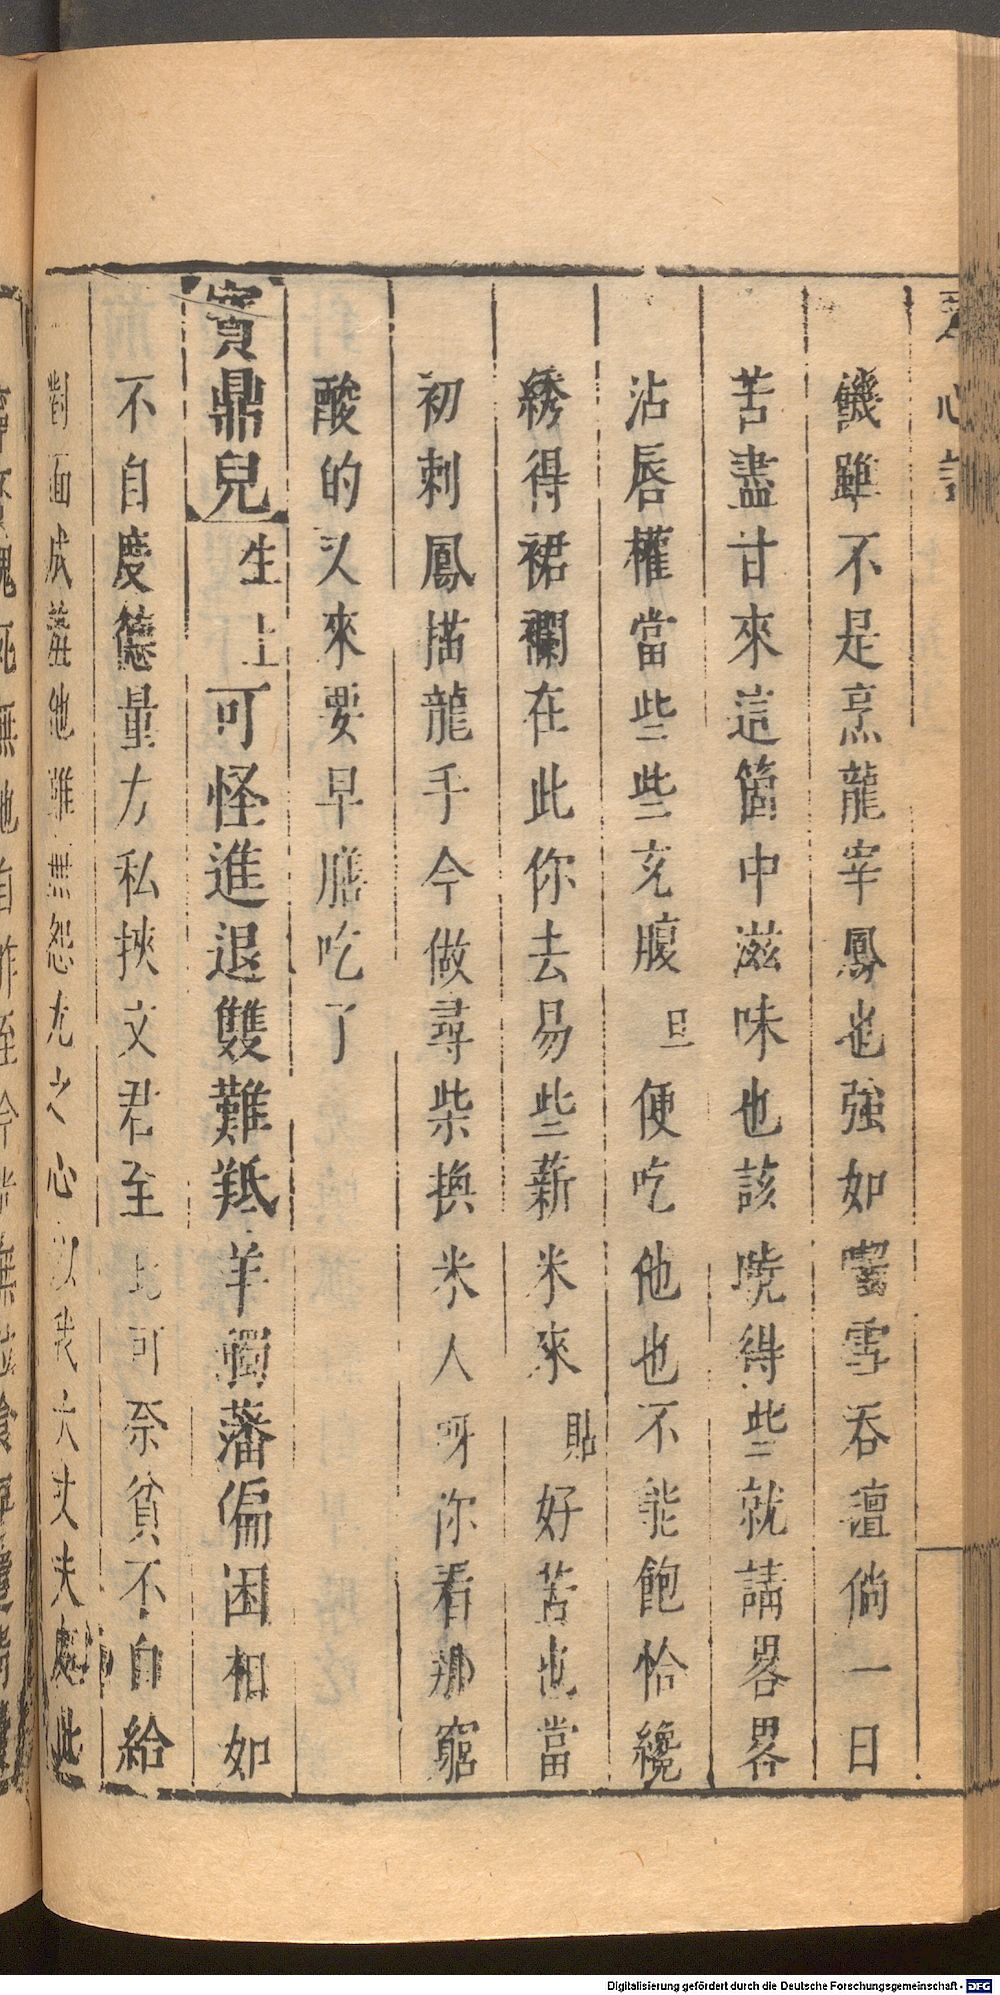 饑雖不是烹龍宰鳳也強如嚙雪吞氊倘一日
苦盡甘來這箇中滋味也該曉得些就請畧畧
沾唇權當些些充腹 旦 便吃他也不能飽恰纔
綉得裙襴在此你去易些薪米來 貼 好苦也當
初刺鳳描龍手今做尋柴換米人呀你看那窮
酸的又來要早膳吃了
寳鼎兒 生上 可怪進退雙難羝羊觸藩偏困相如
不自度德量力私挾文君至此可奈貧不自給
對面成羞他雖無怨尤之心以我大丈夫處此
Digitalisierung gefördert durch die Deutsche Forschungsgemeinschaft - DFG